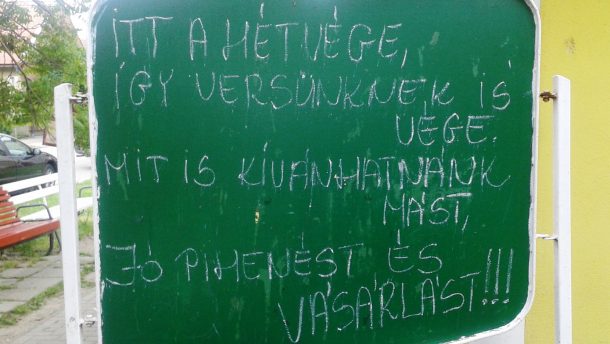 ITT A HÉTVÉGE,
ÍGY VERSÜNKNEK IS
VÉGE.
MIT IS KÍVÁNHATNÁNK
MÁST,
JÓ PIHENÉST ÉS
VÁSÁRLÁST!!!